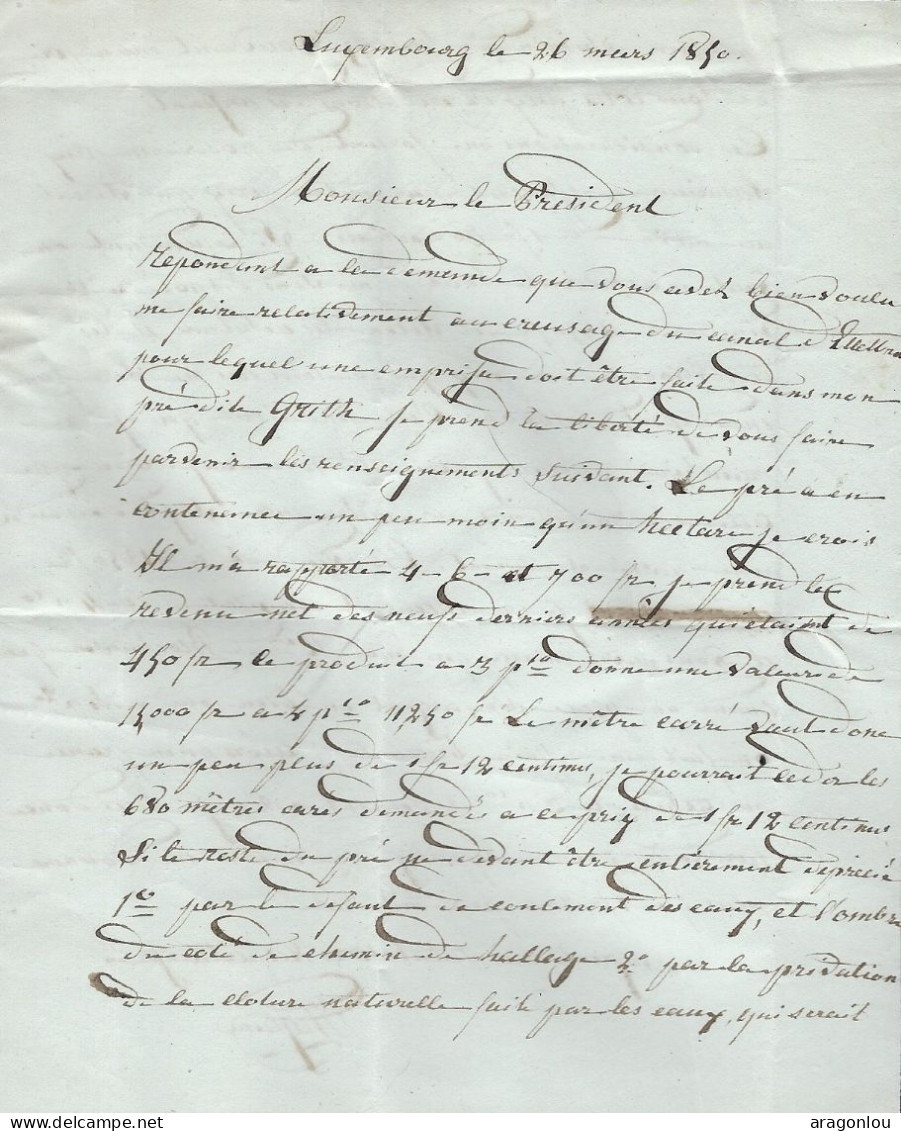 Luxembourg le 26 mars 1850.
Monsieur le President
repondant a la demande que vous avez bien voulu
me faire relativement au creusage du canal d'
pour lequel une emprise doit être faite dans mon
pré dite Grith je prend la liberté de vous faire
parvenir les renseignements suivant. Le pré a en
contenance un peu moin qu'un hectare je crois
Il m'a rapporté 4 - 6 - et 700 fr je prend le
revenu net des neufs derniers années qui étaient de
450 fr le produit a 3 p% donne une valeur de
15,000 fr a 4 p% 11250 fr Le mètre carré vaut donc
un peu plus de 1 fr 12 centimes, je pourrait ceder les
680 mètres cares demandés a ce prix de 1 fr 12 centimes
Si le reste du pré ne devant être entièrement deprecié
1e par le defaut de coulement des eaux, et l'ombre
du coté de chemin de hallage 2° par la privation
de la cloture naturelle faite par les eaux, qui serait
aragonlou